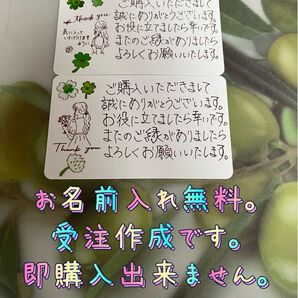 ご購入いただきまして
誠にありがとうございます。
お役に立てましたら幸いです。
またのご縁がありましたら
よろしくお願いいたします。
Thank you
気に入って
いただけます
ように
ご購入いただきまして
誠にありがとうございます。
お役に立てましたら幸いです。
またのご縁がありましたら
よろしくお願いいたします。
Thank you
お名前入れ無料。
受注作成です。
即購入出来ません。